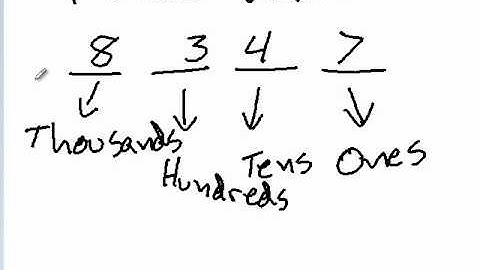 8 3 4 7
Thousands Hundreds Tens Ones